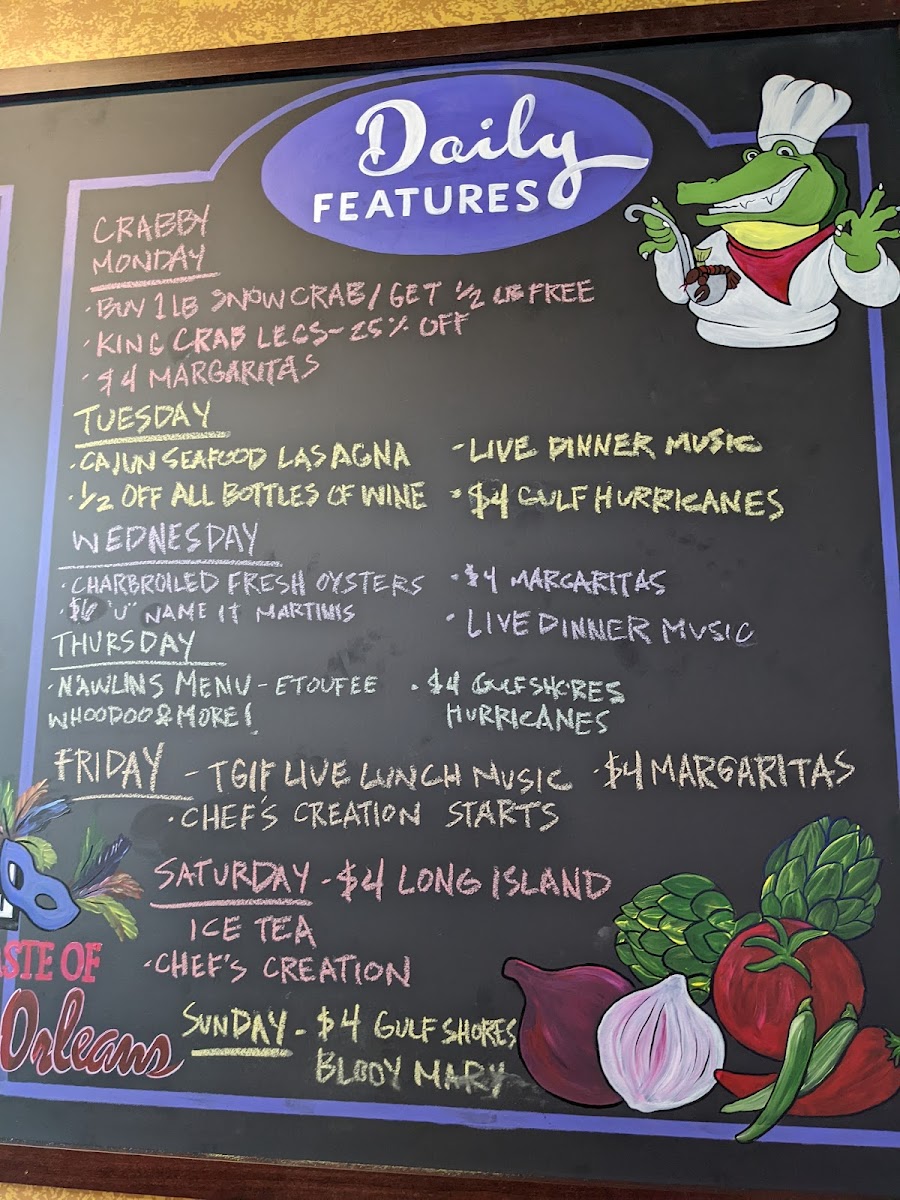 Daily
FEATURES
CRABBY
MONDAY
· BUY 1 LB SNOWCRAB/GET 1/2 LB FREE
· KING CRAB LEGS - 25% OFF
· $4 MARGARITAS
TUESDAY
· CAJUN SEAFOOD LASAGNA
- LIVE DINNER MUSIC
· 1/2 OFF ALL BOTTLES OF WINE
· $4 GULF HURRICANES
WEDNESDAY
· CHARBROILED FRESH OYSTERS
· $4 MARGARITAS
· $6 "U" NAME IT MARTINIS
· LIVE DINNER MUSIC
THURSDAY
· N'AWLINS MENU - ETOUFEE
WHOODOO & MORE!
· $4 GULFSHORES
HURRICANES
FRIDAY - TGIF LIVE LUNCH MUSIC · $4 MARGARITAS
· CHEF'S CREATION STARTS
SATURDAY - $4 LONG ISLAND
ICE TEA
· CHEF'S CREATION
SUNDAY - $4 GULFSHORES
BLODY MARY
STE OF
Orleans